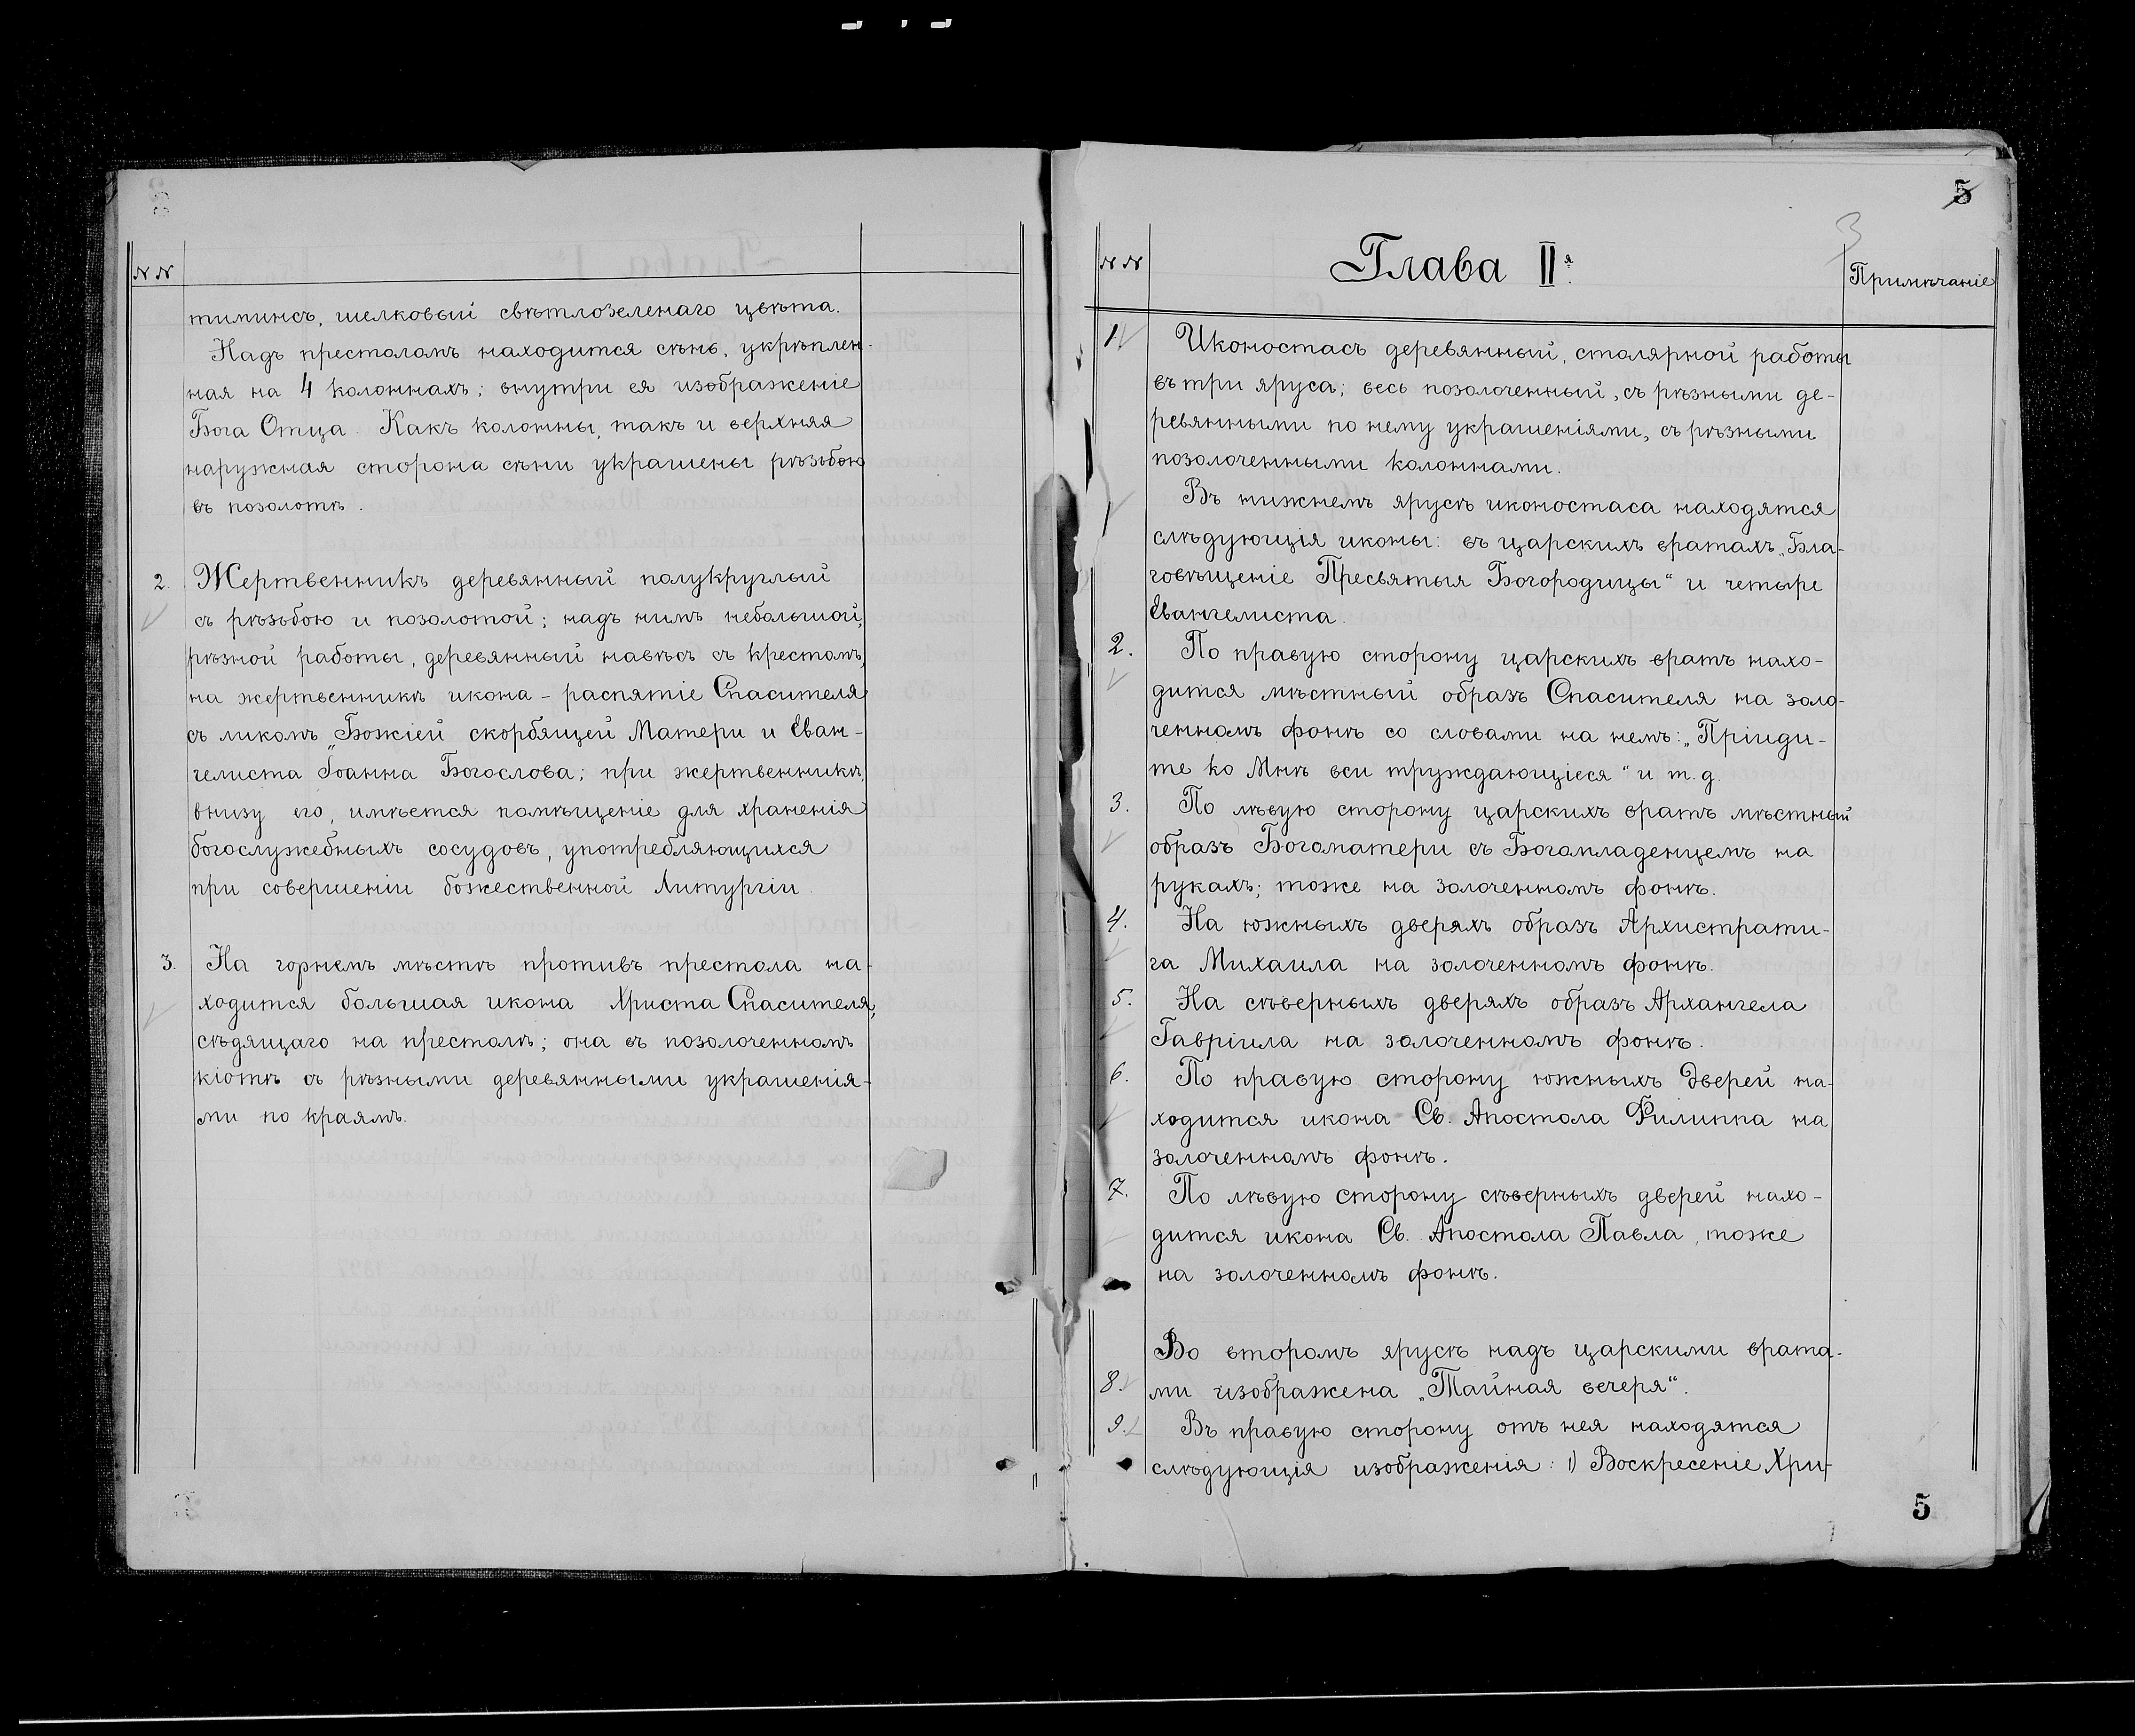 № №
тиминсъ, шелковый свѣтлозеленаго цвѣта.
Надъ престоломъ находится сѣнь, укрѣплен-
ная на 4 колоннахъ; внутри ея изображеніе
Бога Отца. Какъ колонны, такъ и верхняя
наружная сторона сѣни украшены рѣзьбою
въ позолотѣ.
2. Жертвенникъ деревянный полукруглый
съ рѣзьбою и позолотой; надъ нимъ небольшой,
рѣзной работы, деревянный навѣсъ съ крестомъ,
на жертвенникѣ икона - распятіе Спасителя
съ ликомъ „Божіей скорбящей Матери и Еван-
гелиста Іоанна Богослова; при жертвенникѣ,
внизу его, имѣется помѣщеніе для храненія
богослужебныхъ сосудовъ, употребляющихся
при совершеніи божественной Литургіи.
3. На горнемъ мѣстѣ противъ престола на-
ходится большая икона Христа Спасителя,
сѣдящаго на престолѣ; она въ позолоченномъ
кіотѣ съ рѣзными деревянными украшенія-
ми по краямъ.
5
3
№ № Глава IIя. Примѣчаніе
1. Иконостасъ деревянный, столярной работы
въ три яруса; весь позолоченный, съ рѣзными де-
ревянными по нему украшеніями, съ рѣзными
позолоченными колоннами.
Въ нижнемъ ярусѣ иконостаса находятся
слѣдующія иконы: въ царскихъ вратахъ „Бла-
говѣщеніе Пресвятыя Богородицы" и четыре
Евангелиста.
2. По правую сторону царскихъ вратъ нахо-
дится мѣстный образъ Спасителя на золо-
ченномъ фонѣ со словами на немъ: „Пріиди-
те ко Мнѣ вси труждающіеся" и т. д.
3. По лѣвую сторону царскихъ вратъ мѣстный
образъ Богоматери съ Богомладенцемъ на
рукахъ; тоже на золоченномъ фонѣ.
4. На южныхъ дверяхъ образъ Архистрати-
га Михаила на золоченномъ фонѣ.
5. На сѣверныхъ дверяхъ образъ Архангела
Гавріила на золоченномъ фонѣ.
6. По правую сторону южныхъ дверей на-
ходится икона Св. Апостола Филиппа на
золоченномъ фонѣ.
7. По лѣвую сторону сѣверныхъ дверей нахо-
дится икона Св. Апостола Павла, тоже
на золоченномъ фонѣ.
Во второмъ ярусѣ надъ царскими врата-
8. ми изображена „Тайная вечеря".
9. Въ правую сторону отъ нея находятся
слѣдующія изображенія: 1) Воскресеніе Хри-
5